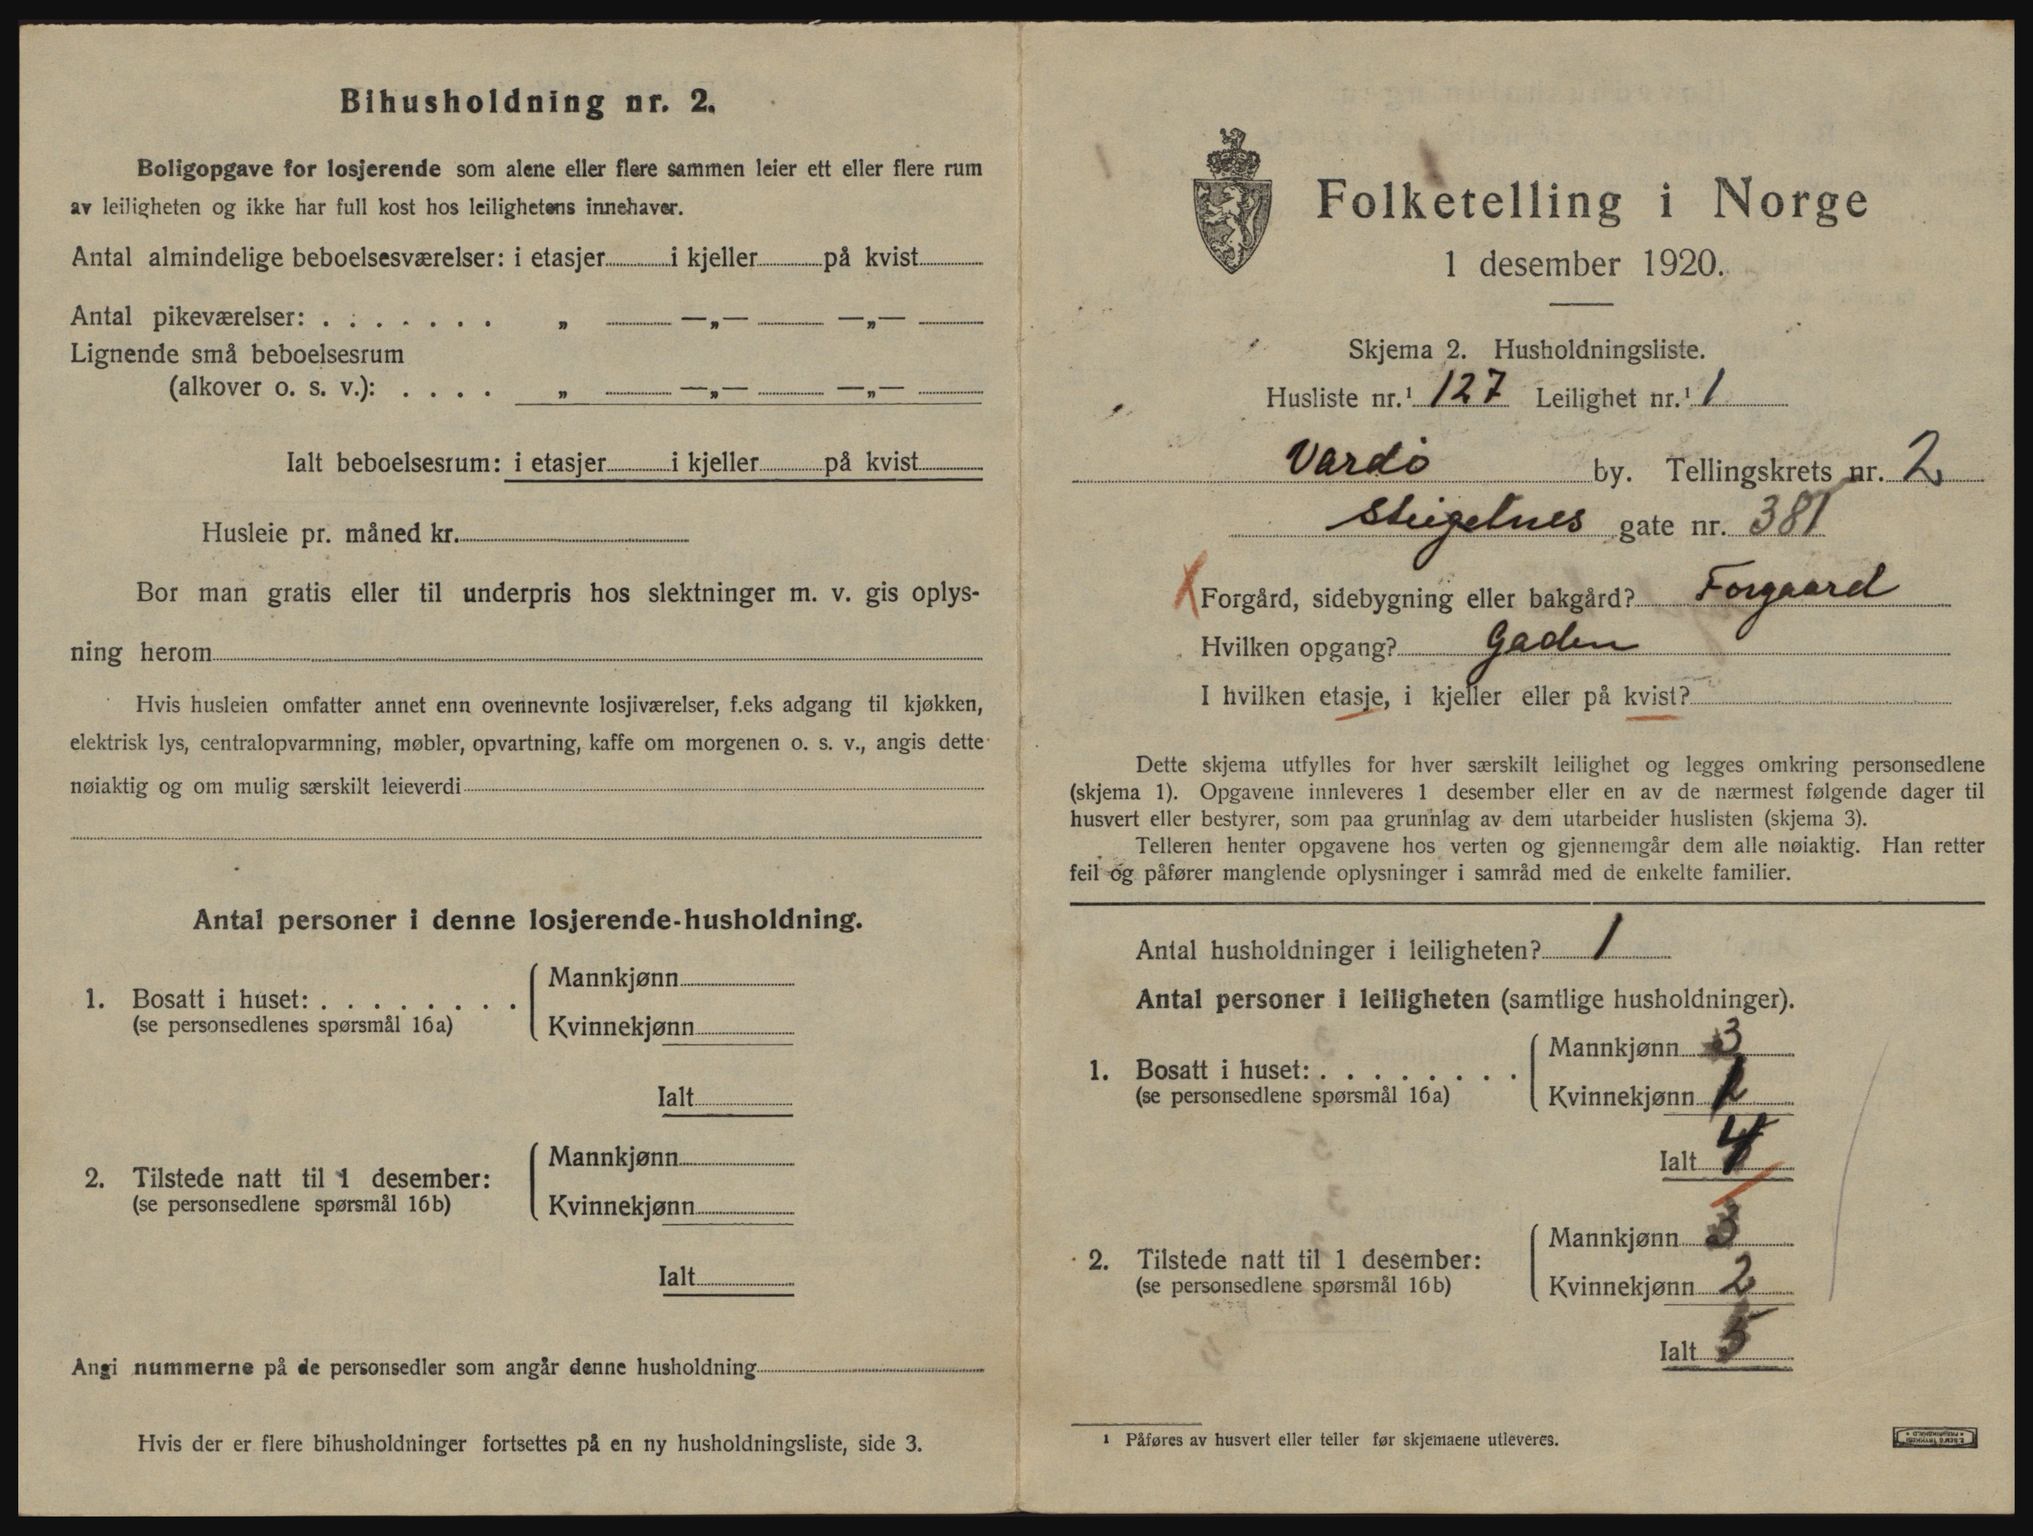 Bihusholdning nr. 2.
Boligopgave for losjerende som alene eller flere sammen leier ett eller flere rum
av leiligheten og ikke har full kost hos leilighetens innehaver.
Antal almindelige beboelsesværelser: i etasjer i kjeller på kvist
Antal pikeværelser: . . . . . . . „ —„— —„—
Lignende små beboelsesrum
(alkover o. s. v.): . . . . „ —„— —„—
Ialt beboelsesrum: i etasjer i kjeller på kvist
Husleie pr. måned kr.
Bor man gratis eller til underpris hos slektninger m. v. gis oplys-
ning herom
Hvis husleien omfatter annet enn ovennevnte losjiværelser, f.eks adgang til kjøkken,
elektrisk lys, centralopvarmning, møbler, opvartning, kaffe om morgenen o. s. v., angis dette
nøiaktig og om mulig særskilt leieverdi
Antal personer i denne losjerende-husholdning.
Mannkjønn
1. Bosatt i huset: . . . . . . . .
(se personsedlenes spørsmål 16a)
Kvinnekjønn
Ialt
Mannkjønn
2. Tilstede natt til 1 desember:
(se personsedlene spørsmål 16b)
Kvinnekjønn
Ialt
Angi nummerne på de personsedler som angår denne husholdning
Hvis der er flere bihusholdninger fortsettes på en ny husholdningsliste, side 3.
Folketelling i Norge
1 desember 1920.
Skjema 2. Husholdningsliste.
Husliste nr.¹ 127 Leilighet nr.¹ 1
Vardø by. Tellingskrets nr. 2
Steigelnes gate nr. 381
X Forgård, sidebygning eller bakgård? Forgaard
Hvilken opgang? Gaden
I hvilken etasje, i kjeller eller på kvist?
Dette skjema utfylles for hver særskilt leilighet og legges omkring personsedlene
(skjema 1). Opgavene innleveres 1 desember eller en av de nærmest følgende dager til
husvert eller bestyrer, som paa grunnlag av dem utarbeider huslisten (skjema 3).
Telleren henter opgavene hos verten og gjennemgår dem alle nøiaktig. Han retter
feil og påfører manglende oplysninger i samråd med de enkelte familier.
Antal husholdninger i leiligheten? 1
Antal personer i leiligheten (samtlige husholdninger).
Mannkjønn 3
1. Bosatt i huset: . . . . . . . .
(se personsedlene spørsmål 16a)
Kvinnekjønn
Ialt 4
Mannkjønn 3
2. Tilstede natt til 1 desember:
(se personsedlene spørsmål 16b)
Kvinnekjønn 2
Ialt 5
¹ Påføres av husvert eller teller før skjemaene utleveres.